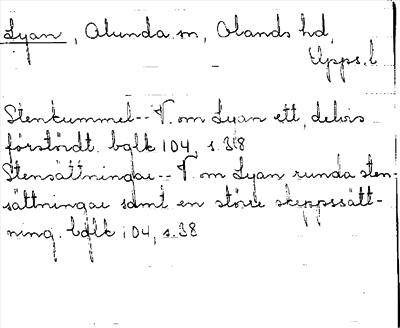 Lyan, Alunda sn, Olands hd,
Upps. l
Stenkummel -- V. om Lyan ett, delvis
förstördt. bglk 104, s. 38
Stensättningar -- V. om Lyan runda sten-
sättningar samt en större skeppssätt-
ning. bglk 104, s. 38